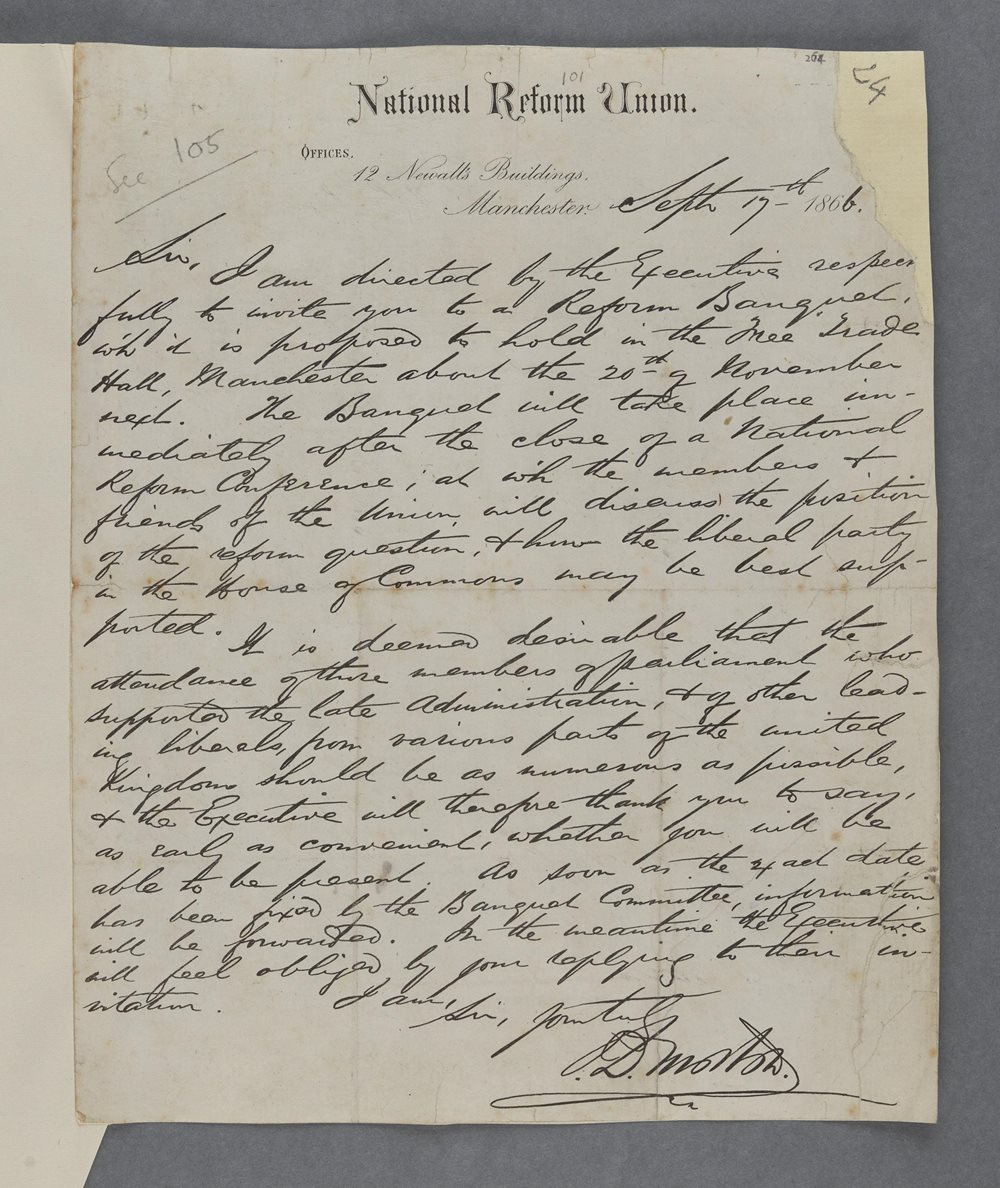 264
24
101
National Reform Union.
See 105
Offices,
12 Newall's Buildings,
Manchester, Septr 17th 1866.
Sir, I am directed by the Executive respect
fully to invite you to a Reform Banquet,
wh it is proposed to hold in the Free Trade
Hall, Manchester about the 20th of November
next. The Banquet will take place im-
mediately after the close of a National
Reform Conference, at wh the members &
friends of the Union, will discuss the position
of the reform question, & how the liberal party
in the House of Commons may be best sup-
ported. It is deemed desirable that the
attendance of those members of parliament who
supported the late Administration, & of other lead-
ing liberals, from various parts of the united
Kingdom should be as numerous as possible,
& the Executive will therefore thank you to say,
as early as convenient, whether you will be
able to be present. As soon as the exact date
has been fixed by the Banquet Committee, information
will be forwarded. In the meantime the Executive
will feel obliged by your replying to their in-
vitation. I am,
Sir, yours truly
J. D. Morton.